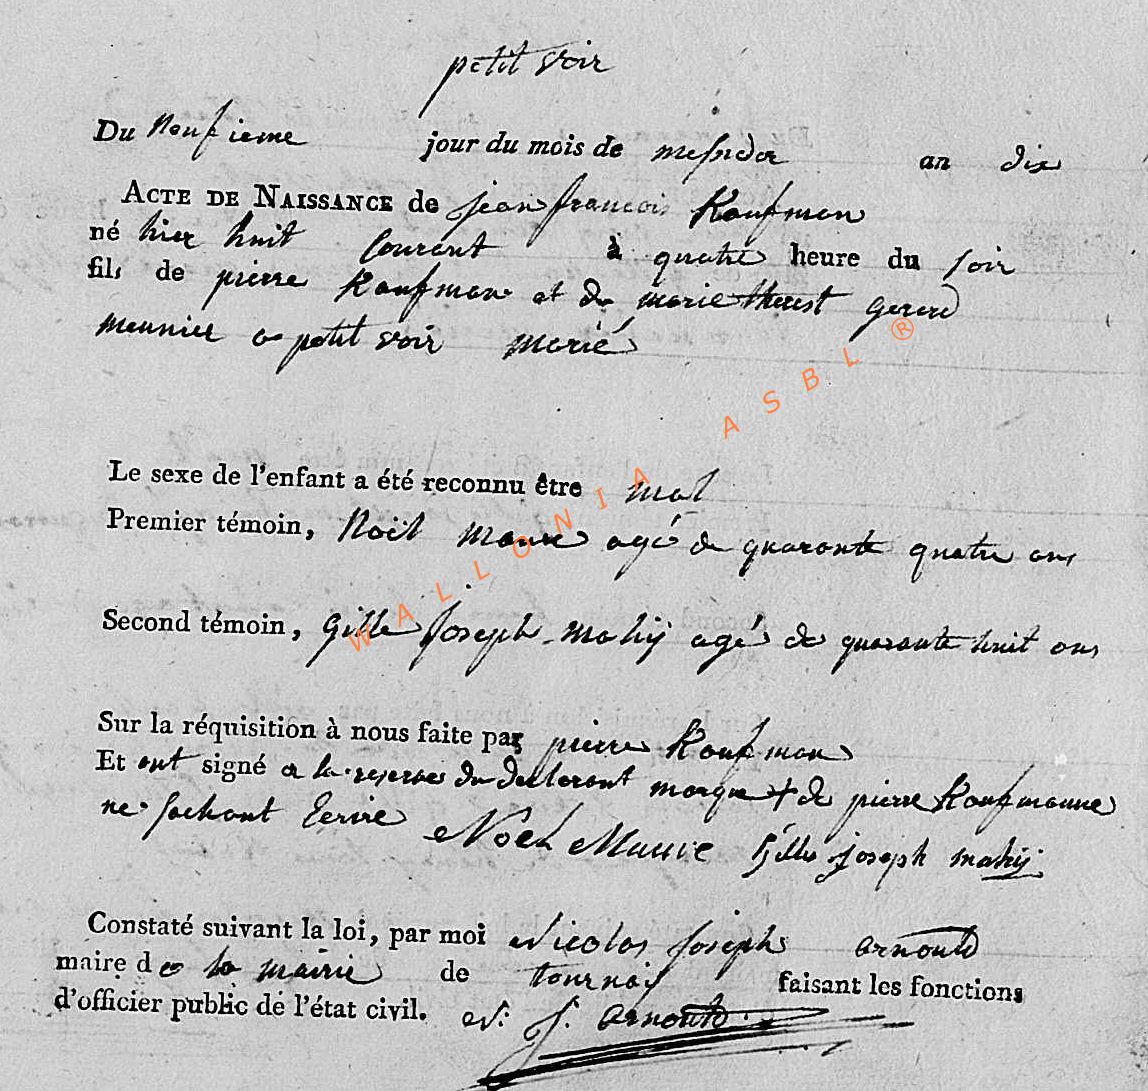 petit voir
Du neufieme jour du mois de messidor an dix
ACTE DE NAISSANCE de jean francois Kaufman
né hier huit Courant à quatre heure du soir
fils de pierre Kaufman et de marie therest gerard
meunier a petit voir marié
Le sexe de l'enfant a été reconnu être mal
Premier témoin, Noël maurie agé de quarante quatre ans
Second témoin, gille joseph mahij agé de quarante huit ans
Sur la réquisition à nous faite par pierre Kaufman
Et ont signé a la reserve du declarant marque + de pierre Kaufmanne
ne sachant Ecrire Noël Maurie Gille joseph mahij
Constaté suivant la loi, par moi Nicolas joseph arnould
maire de la mairie de tournay faisant les fonctions
d'officier public de l'état civil. N. J. arnould
WALLONIA ASBL ®